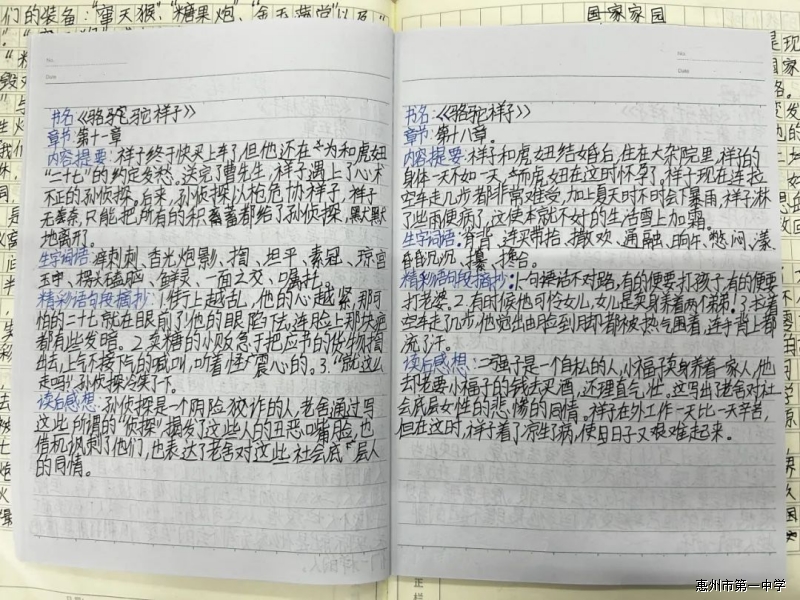 们的装备："蛋天猴"、"糖果炮"、
国家家园
No.
Date
书名:《骆驼祥子》
章节:第十一章
内容提要:祥子终于快买上车了,但他还在为和虎妞
"二十七"的约定发愁。送完曹先生,祥子遇上了心术
不正的孙侦探。后来,孙侦探以枪危协祥子,祥子
无奈,只能把所有的积蓄都给了孙侦探,默默
地离开。
生字词语:辣刺刺、吉光炮影、掏、坦平、素冠、琼宫
玉宇、楞头磕脑、鲜灵、一面之交、嘱托。
精彩语句段摘抄:1.街上越乱,他的心越紧,那可
怕的二十七就在眼前了!他的眼陷下去,连脸上那块疤
都有些发暗。2.卖糖的小贩急于把应节的货物掏
出去,上气不接下气的喊叫,听着怪震心的。3."就这么
走吗?"孙侦探冷笑了下。
读后感想:孙侦探是一个阴险狡诈的人,老舍通过写
这些所谓的"侦探"揭发了这些人的丑恶嘴脸,也
借机讽刺了他们,也表达了老舍对这些社会底层人
的同情。
No.
Date
书名:《骆驼祥子》
章节:第十八章。
内容提要:祥子和虎妞结婚后,住在大杂院里,祥子的
身体一天不如一天,而虎妞在这时怀孕了。祥子现在连拉
空车走几步都非常难受,加上夏天时不时会下暴雨,祥子淋
了些雨便病了,这使本就不好的生活雪上加霜。
生字词语:脊背、连买带拾、撒欢、通融、晌午、憋闷、
昏昏沉沉、
精彩语句段摘抄:1.一句接话不对路,有的便要打孩子,有的便要
打老婆。2.有时候他可怜女儿,女儿是卖身养着两个弟弟!3.拉着
空车走几步,他觉出由脸到脚都被热气围着,连手背上都
流了汗。
读后感想:二强子是一个自私的人,小福子卖身养着一家人,他
却老要小福子的钱去买酒,还理直气壮。这写出了老舍对社
会底层女性的悲惨的同情。祥子在外工作一天比一天辛苦,
但在这时,祥子着了凉生了病,使日日子又艰难起来。
惠州市第一中学